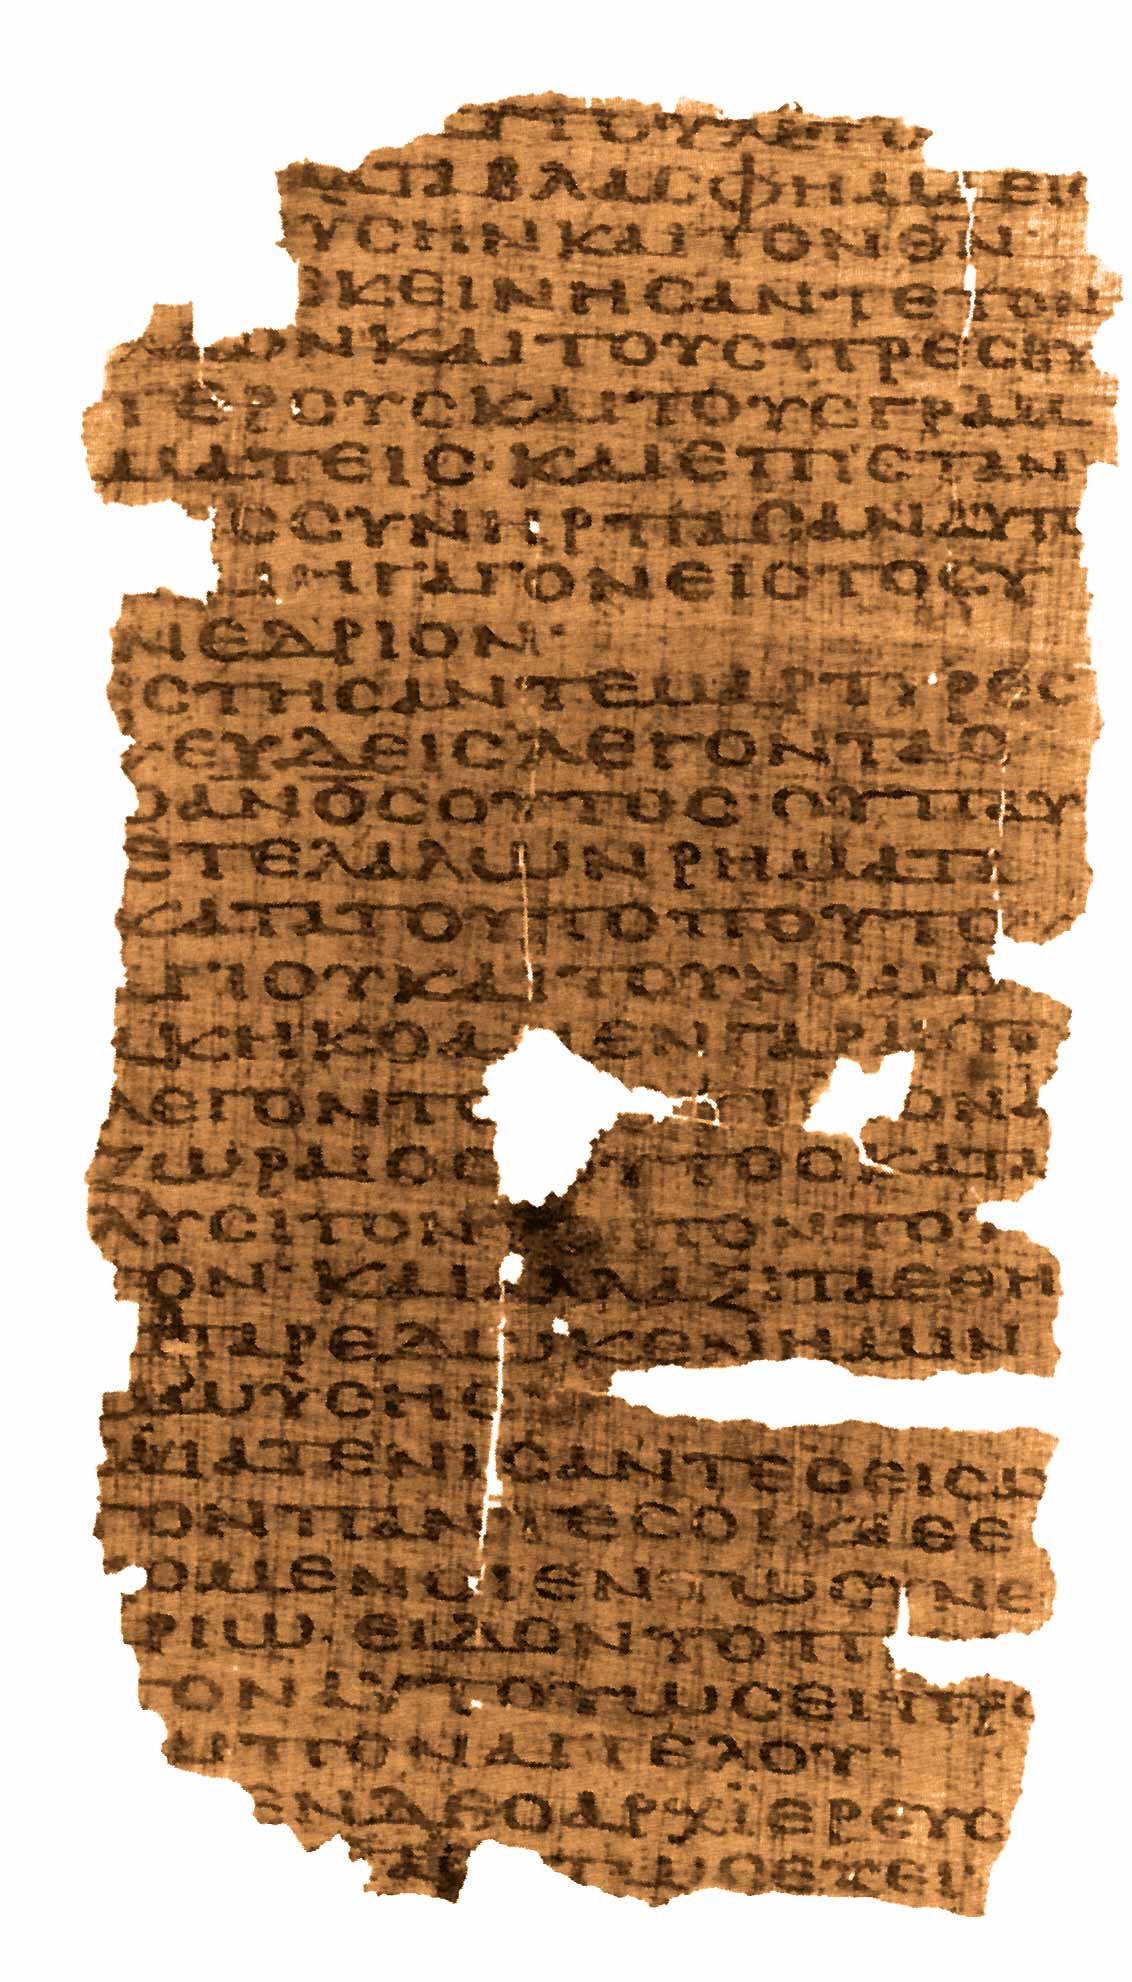 ΑΥΤΟΥ ΛΕΓΟ
ΜΑΤΑ ΒΛΑΣΦΗΜΑ ΕΙ
ΥΣΗΝ ΚΑΙ ΤΟΝ ΘΝ·
ΕΚΕΙΝΗΣΑΝ ΤΕ ΤΟΝ
ΛΑΟΝ ΚΑΙ ΤΟΥΣ ΠΡΕΣΒΥ
ΤΕΡΟΥΣ ΚΑΙ ΤΟΥΣ ΓΡΑΜ
ΜΑΤΕΙΣ· ΚΑΙ ΕΠΙΣΤΑΝ
Σ ΣΥΝΗΡΠΑΣΑΝ ΑΥΤΟ
ΑΙ ΗΓΑΓΟΝ ΕΙΣ ΤΟ ΣΥ
ΝΕΔΡΙΟΝ·
ΕΣΤΗΣΑΝ ΤΕ ΜΑΡΤΥΡΕΣ
ΨΕΥΔΕΙΣ ΛΕΓΟΝΤΑΣ
Ο ΑΝΟΣ ΟΥΤΟΣ· ΟΥ ΠΑΥ
ΕΤΕ ΛΑΛΩΝ ΡΗΜΑΤΑ
ΚΑΤΑ ΤΟΥ ΤΟΠΟΥ ΤΟΥ
ΑΓΙΟΥ ΚΑΙ ΤΟΥ ΝΟΜΟΥ
ΑΚΗΚΟΑΜΕΝ ΓΑΡ ΑΥΤΟΥ
ΛΕΓΟΝΤΟΣ ΟΝΑ
ΖΩΡΑΙΟΣ ΟΥΤΟΣ ΚΑΤΑ
ΛΥΣΙ ΤΟΝ ΤΟΠΟΝ ΤΟΥ
ΤΟΝ· ΚΑΙ ΑΛΛΑΞΙ ΤΑ ΕΘΗ
Α ΠΑΡΕΔΩΚΕΝ ΗΜΙΝ
ΜΩΥΣΗΣ
ΚΑΙ ΑΤΕΝΙΣΑΝΤΕΣ ΕΙΣ ΑΥ
ΤΟΝ ΠΑΝΤΕΣ ΟΙ ΚΑΘΕ
ΖΟΜΕΝΟΙ ΕΝ ΤΩ ΣΥΝΕ
ΔΡΙΩ· ΕΙΔΟΝ ΤΟ ΠΡ
ΠΟΝ ΑΥΤΟΥ ΩΣΕΙ ΠΡΟ
ΣΩΠΟΝ ΑΓΓΕΛΟΥ·
ΕΙΠΕΝ ΔΕ Ο ΑΡΧΙΕΡΕΥΣ
ΤΑΥΤΑ ΟΥΤΩΣ ΕΧΕΙ